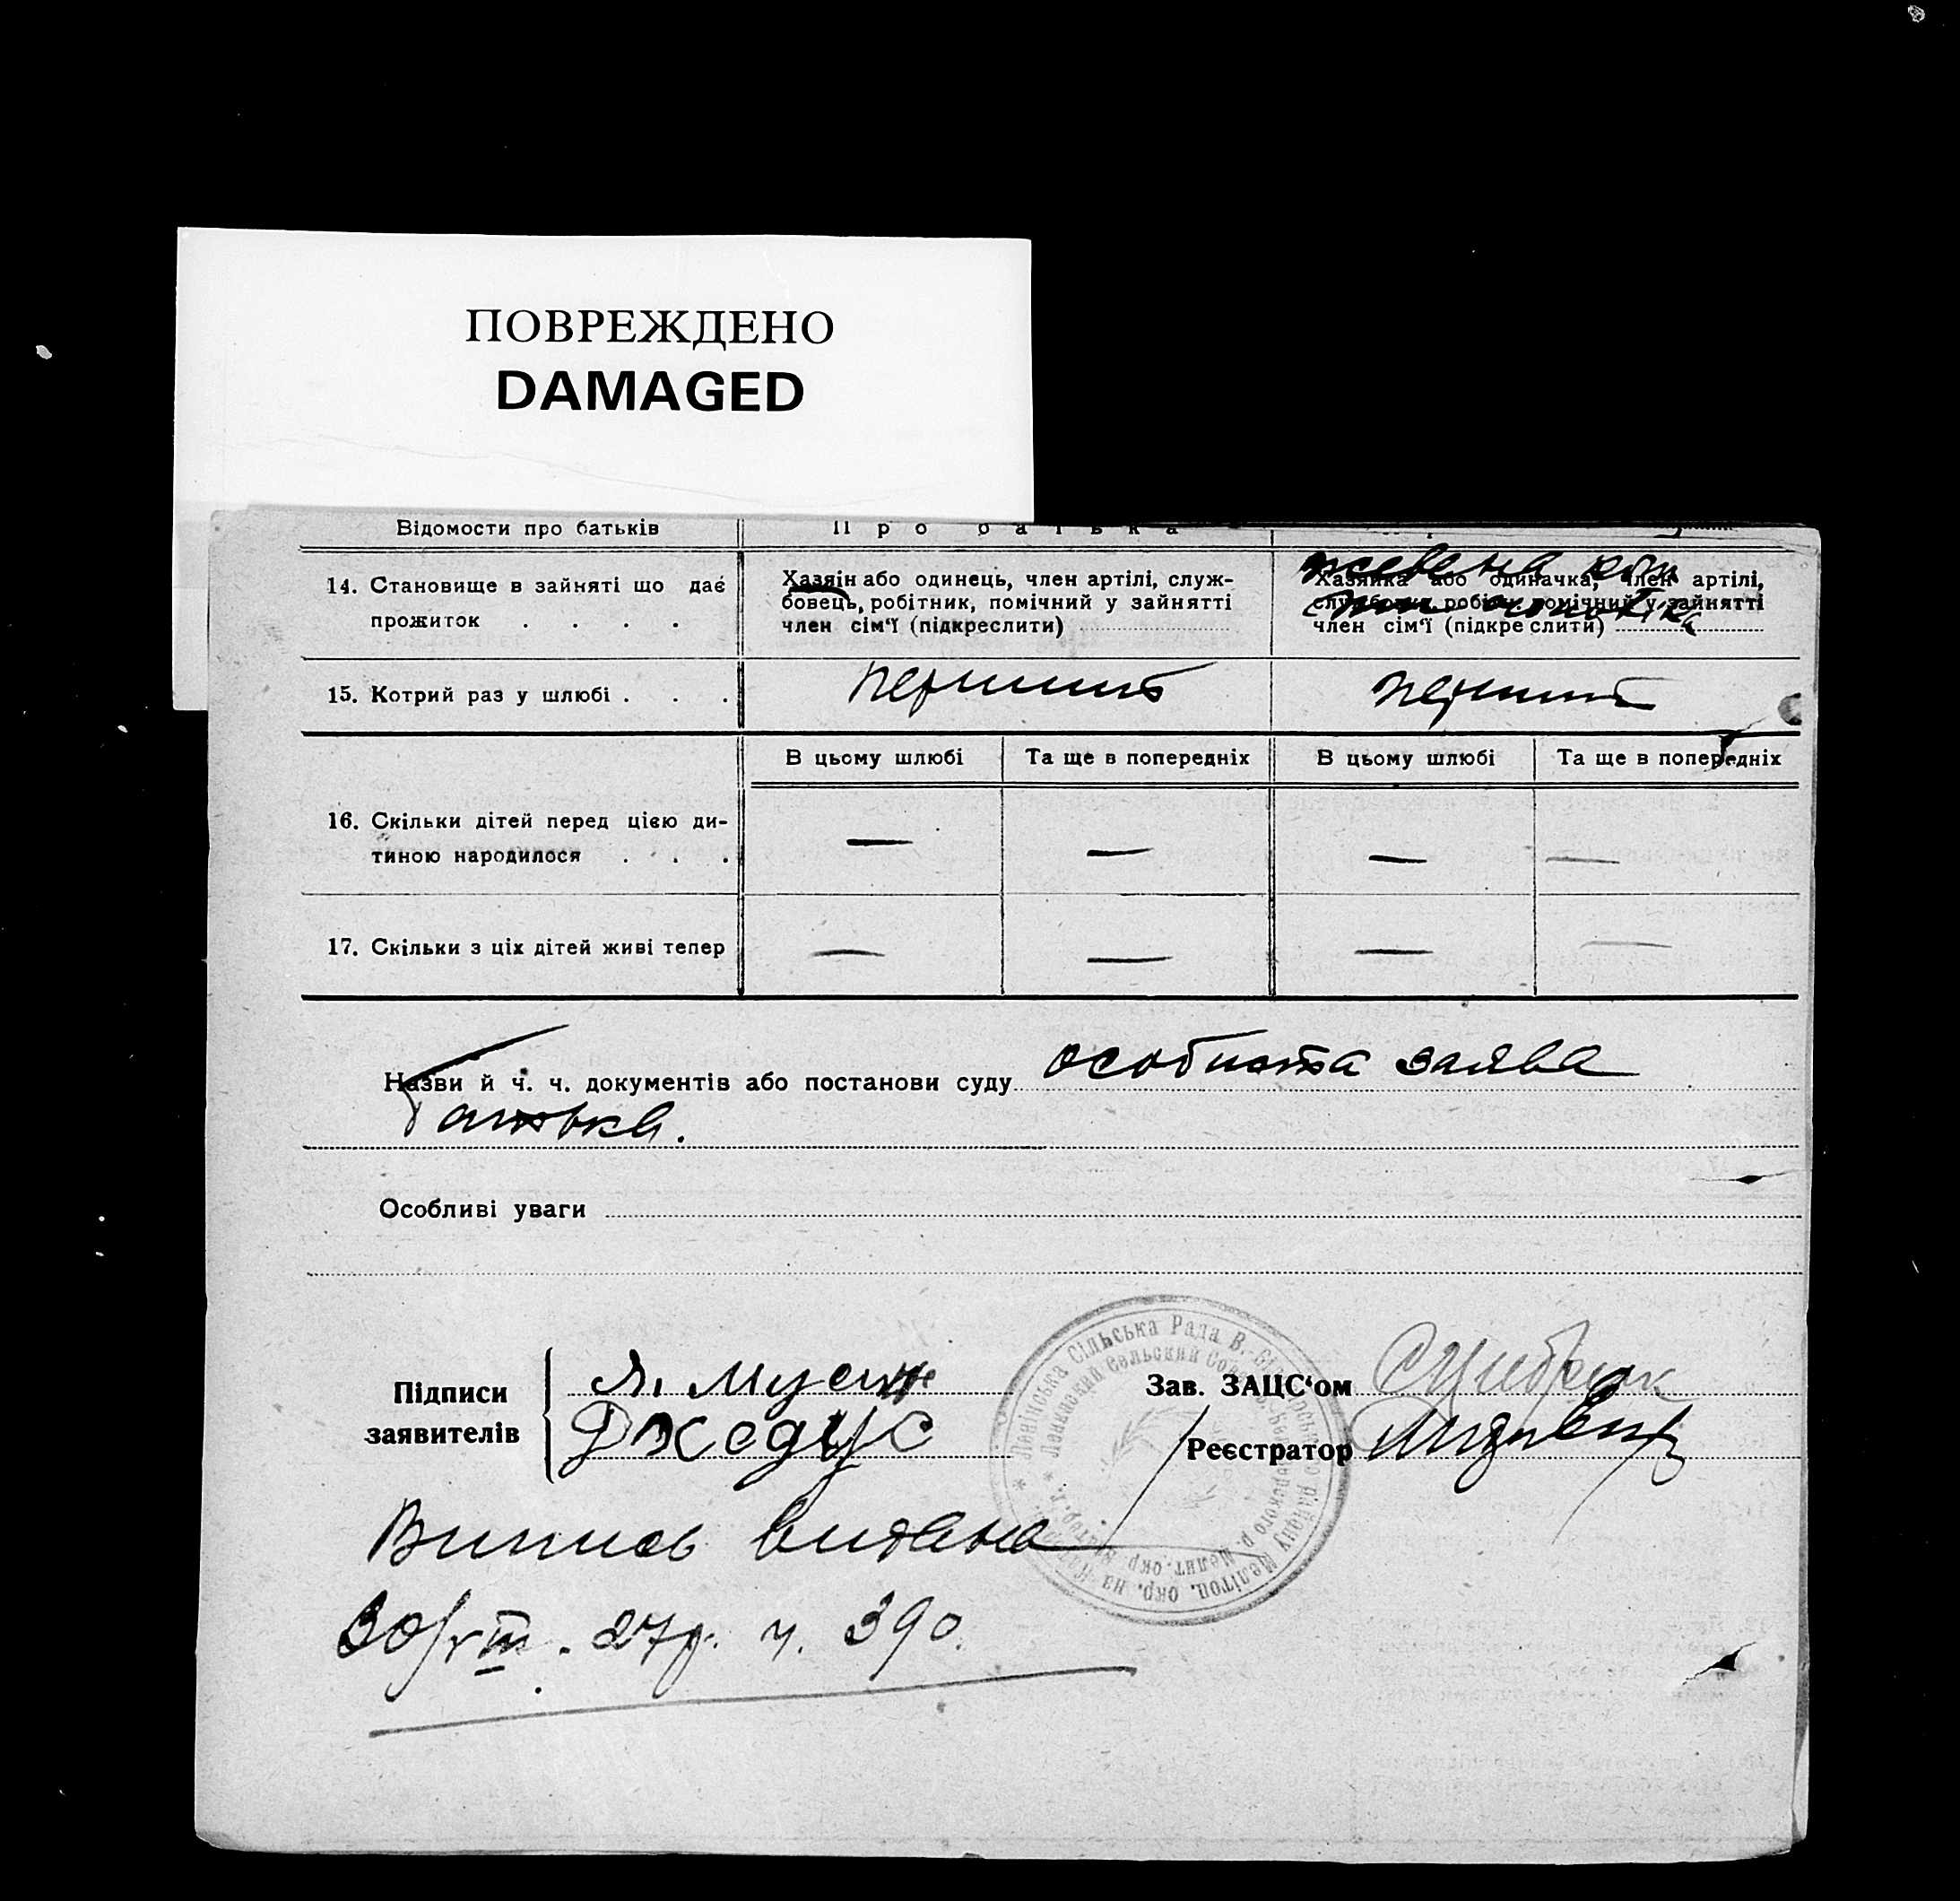 ПОВРЕЖДЕНО
DAMAGED
Відомости про батьків
Про батька
14. Становище в зайняті що дає
прожиток . . . .
Хазяін або одинець, член артілі, служ-
бовець, робітник, помічний у зайнятті
член сім'ї (підкреслити)
живена кош
Хазяйка або одиначка, член артілі,
службовка, робітн. помічний у зайнятті
чоловіка
член сім'ї (підкреслити)
15. Котрий раз у шлюбі . . .
перший
перший
В цьому шлюбі
Та ще в попередніх
В цьому шлюбі
Та ще в попередніх
16. Скільки дітей перед цією ди-
тиною народилося . . .
— — — —
17. Скільки з ціх дітей живі тепер
— — — —
Назви й ч. ч. документів або постанови суду особиста заява
батька.
Особливі уваги
Підписи
заявителів
Я. Мусин
Зав. ЗАЦС'ом
Реєстратор
Ленінська Сільська Рада В.-Білозірського району Меліто. окр. на
Ленинский Сельский Совет Белозерского р. Мелит. окр.
Випись видана
30/VIII. 27р. ч. 390.